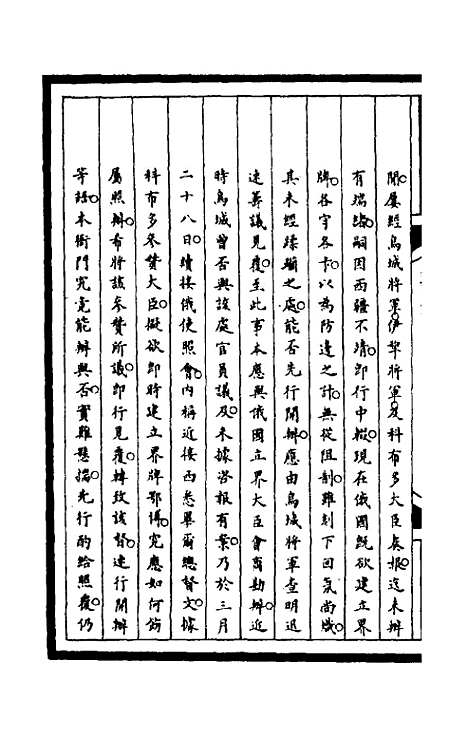 間屢經烏城將軍伊犂將軍及科布多大臣奏報迄未辦
有端緒嗣因西疆不靖即行中輟現在俄國既欲建立界
牌各守各卡以為防邊之計無從阻制雖刻下回氣尚熾
其未經蹂躪之處能否先行開辦應由烏城將軍查明迅
速籌議見覆至此事本應與俄國立界大臣會商勘辦近
時烏城曾否與該處官員議及未據咨報有案乃於三月
二十八日續接俄使照會內稱近接西悉畢爾總督文據
科布多參贊大臣擬欲即時建立界牌鄂博究應如何飭
屬照辦希將該參贊所議即行見覆轉致該督速行開辦
等語本衙門究竟能辦與否實難懸揣先行酌給照覆仍